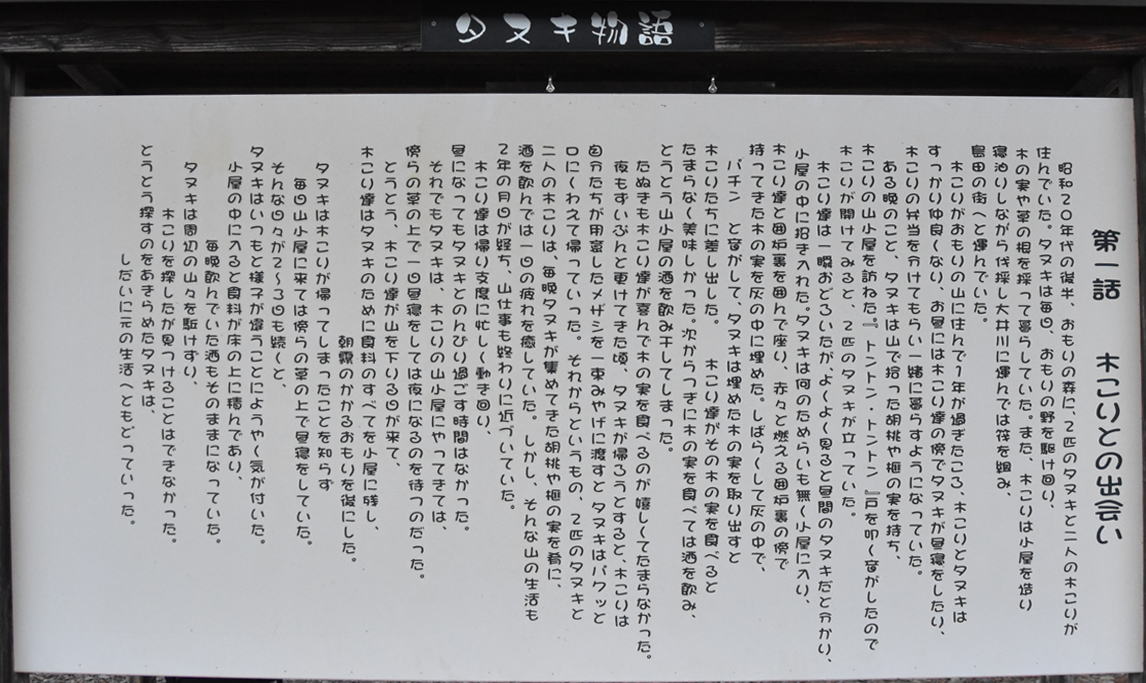 タヌキ物語
第一話　木こりとの出会い
昭和２０年代の後半、おもりの森に、２匹のタヌキと二人の木こりが
住んでいた。タヌキは毎日、おもりの野を駆け回り、
木の実や草の根を採って暮らしていた。また、木こりは小屋を造り
寝泊りしながら伐採し大井川に運んでは筏を組み、
島田の街へと運んでいた。
木こりがおもりの山に住んで１年が過ぎたころ、木こりとタヌキは
すっかり仲良くなり、お昼には木こり達の傍でタヌキが昼寝をしたり、
木こりの弁当を分けてもらい一緒に暮らすようになっていた。
ある晩のこと、タヌキは山で拾った胡桃や榧の実を持ち、
木こりの山小屋を訪ねた。『トントン・トントン』戸を叩く音がしたので
木こりが開けてみると、２匹のタヌキが立っていた。
木こり達は一瞬おどろいたが、よくよく見ると昼間のタヌキだと分かり、
小屋の中に招き入れた。タヌキは何のためらいも無く小屋に入り、
木こり達と囲炉裏を囲んで座り、赤々と燃える囲炉裏の傍で
持ってきた木の実を灰の中に埋めた。しばらくして灰の中で、
パチン　と音がして、タヌキは埋めた木の実を取り出すと
木こりたちに差し出した。　木こり達がその木の実を食べると
たまらなく美味しかった。次からつぎに木の実を食べては酒を飲み、
とうとう山小屋の酒を飲み干してしまった。
たぬきも木こり達が喜んで木の実を食べるのが嬉しくてたまらなかった。
夜もずいぶんと更けてきた頃、タヌキが帰ろうとすると、木こりは
自分たちが用意したメザシを一束みやげに渡すと タヌキはパクッと
口にくわえて帰っていった。それからというもの、２匹のタヌキと
二人の木こりは、毎晩タヌキが集めてきた胡桃や榧の実を肴に、
酒を飲んでは一日の疲れを癒していた。しかし、そんな山の生活も
２年の月日が経ち、山仕事も終わりに近づいていた。
木こり達は帰り支度に忙しく動き回り、
昼になってもタヌキとのんびり過ごす時間はなかった。
それでもタヌキは、木こりの山小屋にやってきては、
傍らの草の上で一日昼寝をしては夜になるのを待つのだった。
とうとう、木こり達が山を下りる日が来て、
木こり達はタヌキのために食料のすべてを小屋に残し、
朝霧のかかるおもりを後にした。
タヌキは木こりが帰ってしまったことを知らず
毎日山小屋に来ては傍らの草の上で昼寝をしていた。
そんな日々が２～３日も続くと、
タヌキはいつもと様子が違うことにようやく気が付いた。
小屋の中に入ると食料が床の上に積んであり、
毎晩飲んでいた酒もそのままになっていた。
タヌキは周辺の山々を駈けずり、
木こりを探したが見つけることはできなかった。
とうとう探すのをあきらめたタヌキは、
しだいに元の生活へともどっていった。